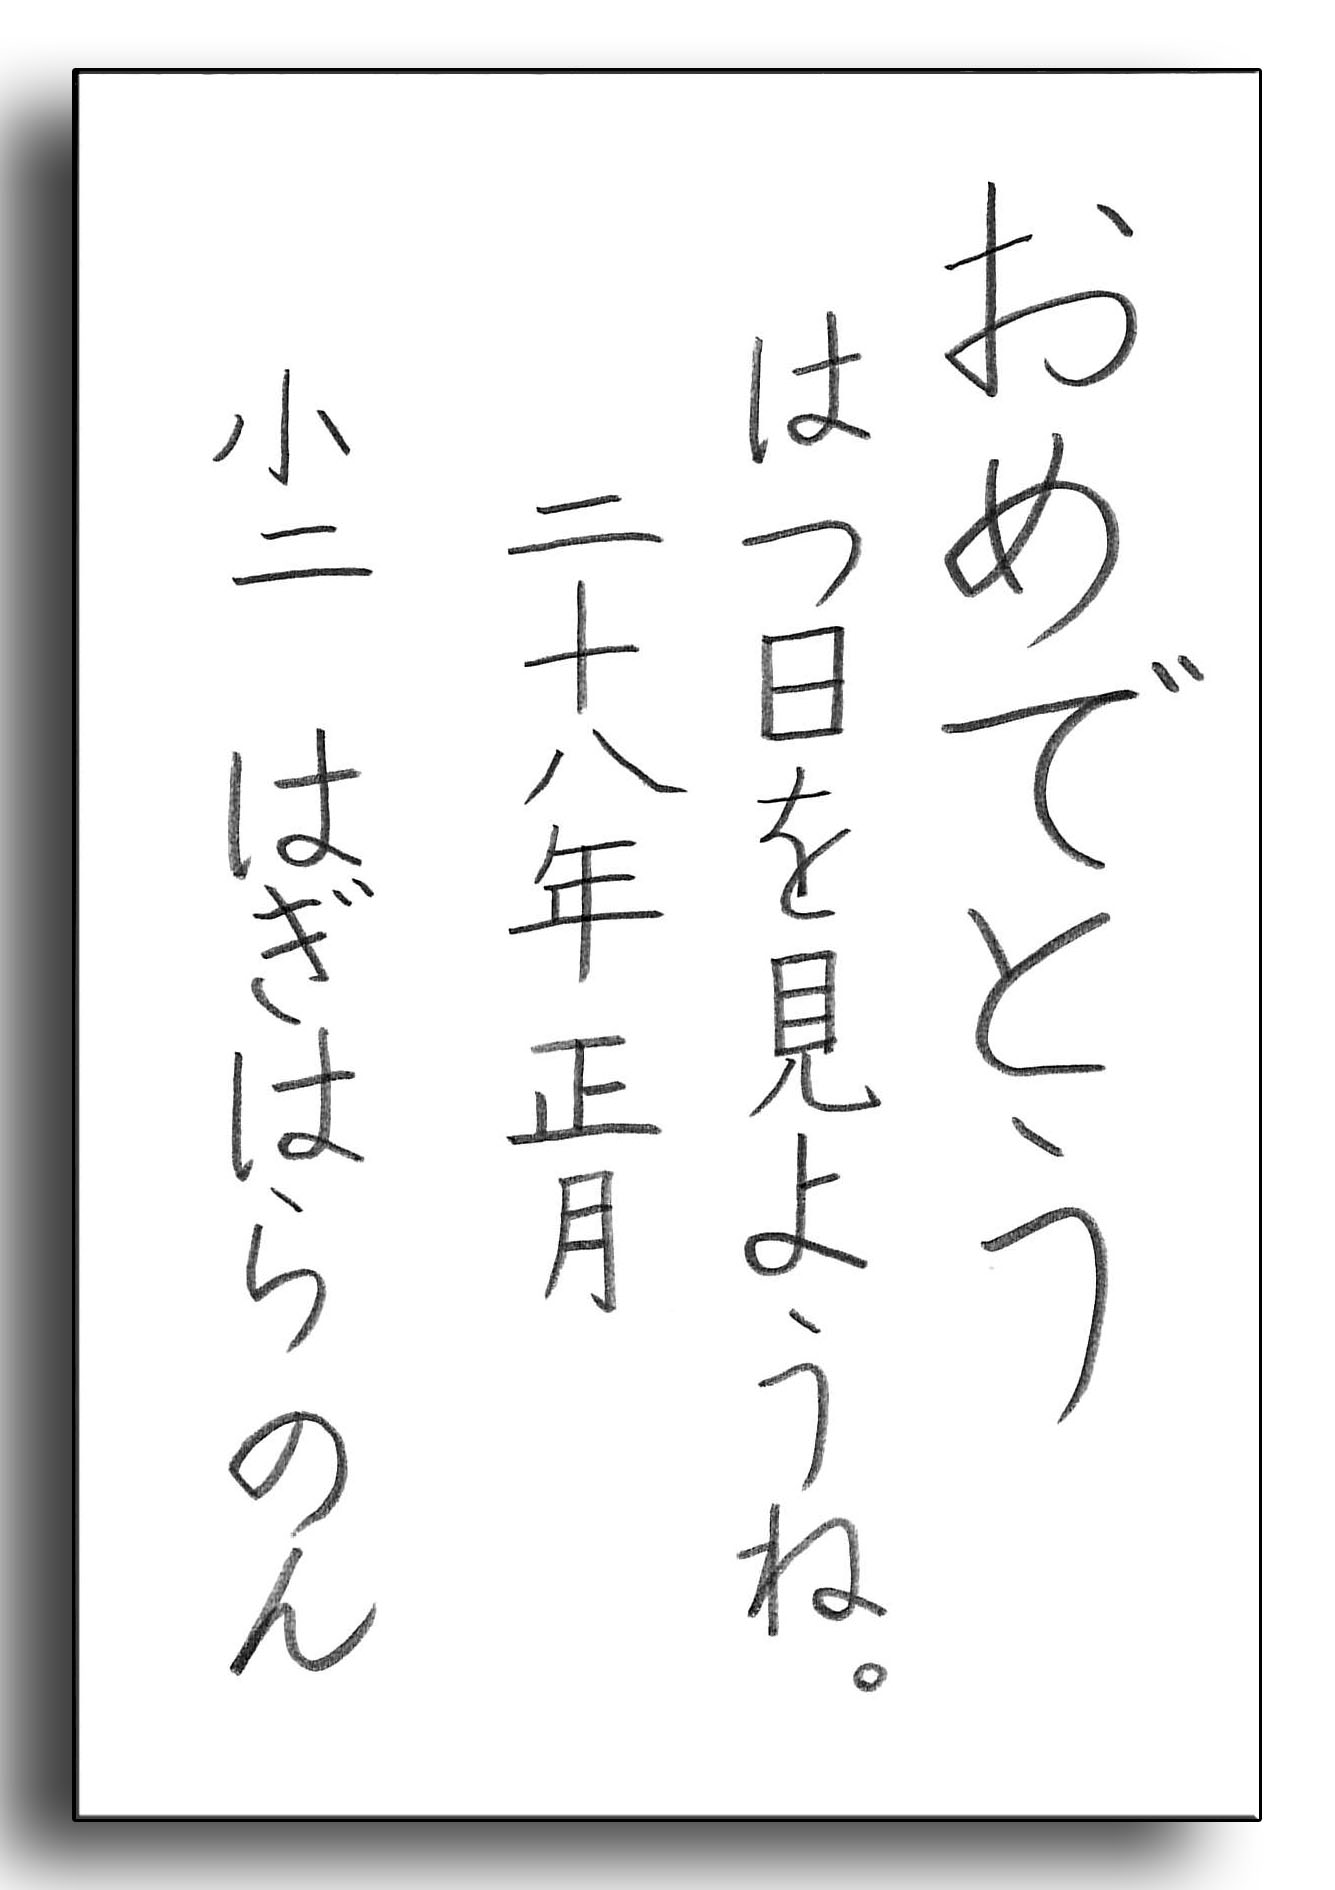 おめでとう
はつ日を見ようね。
二十八年 正月
小二 はぎはら のん